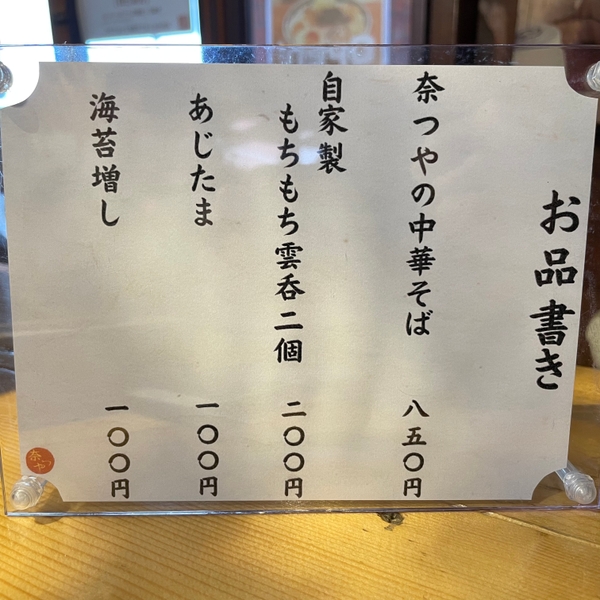 お品書き
奈つやの中華そば 八五〇円
自家製
もちもち雲呑二個 二〇〇円
あじたま 一〇〇円
海苔増し 一〇〇円
奈つや